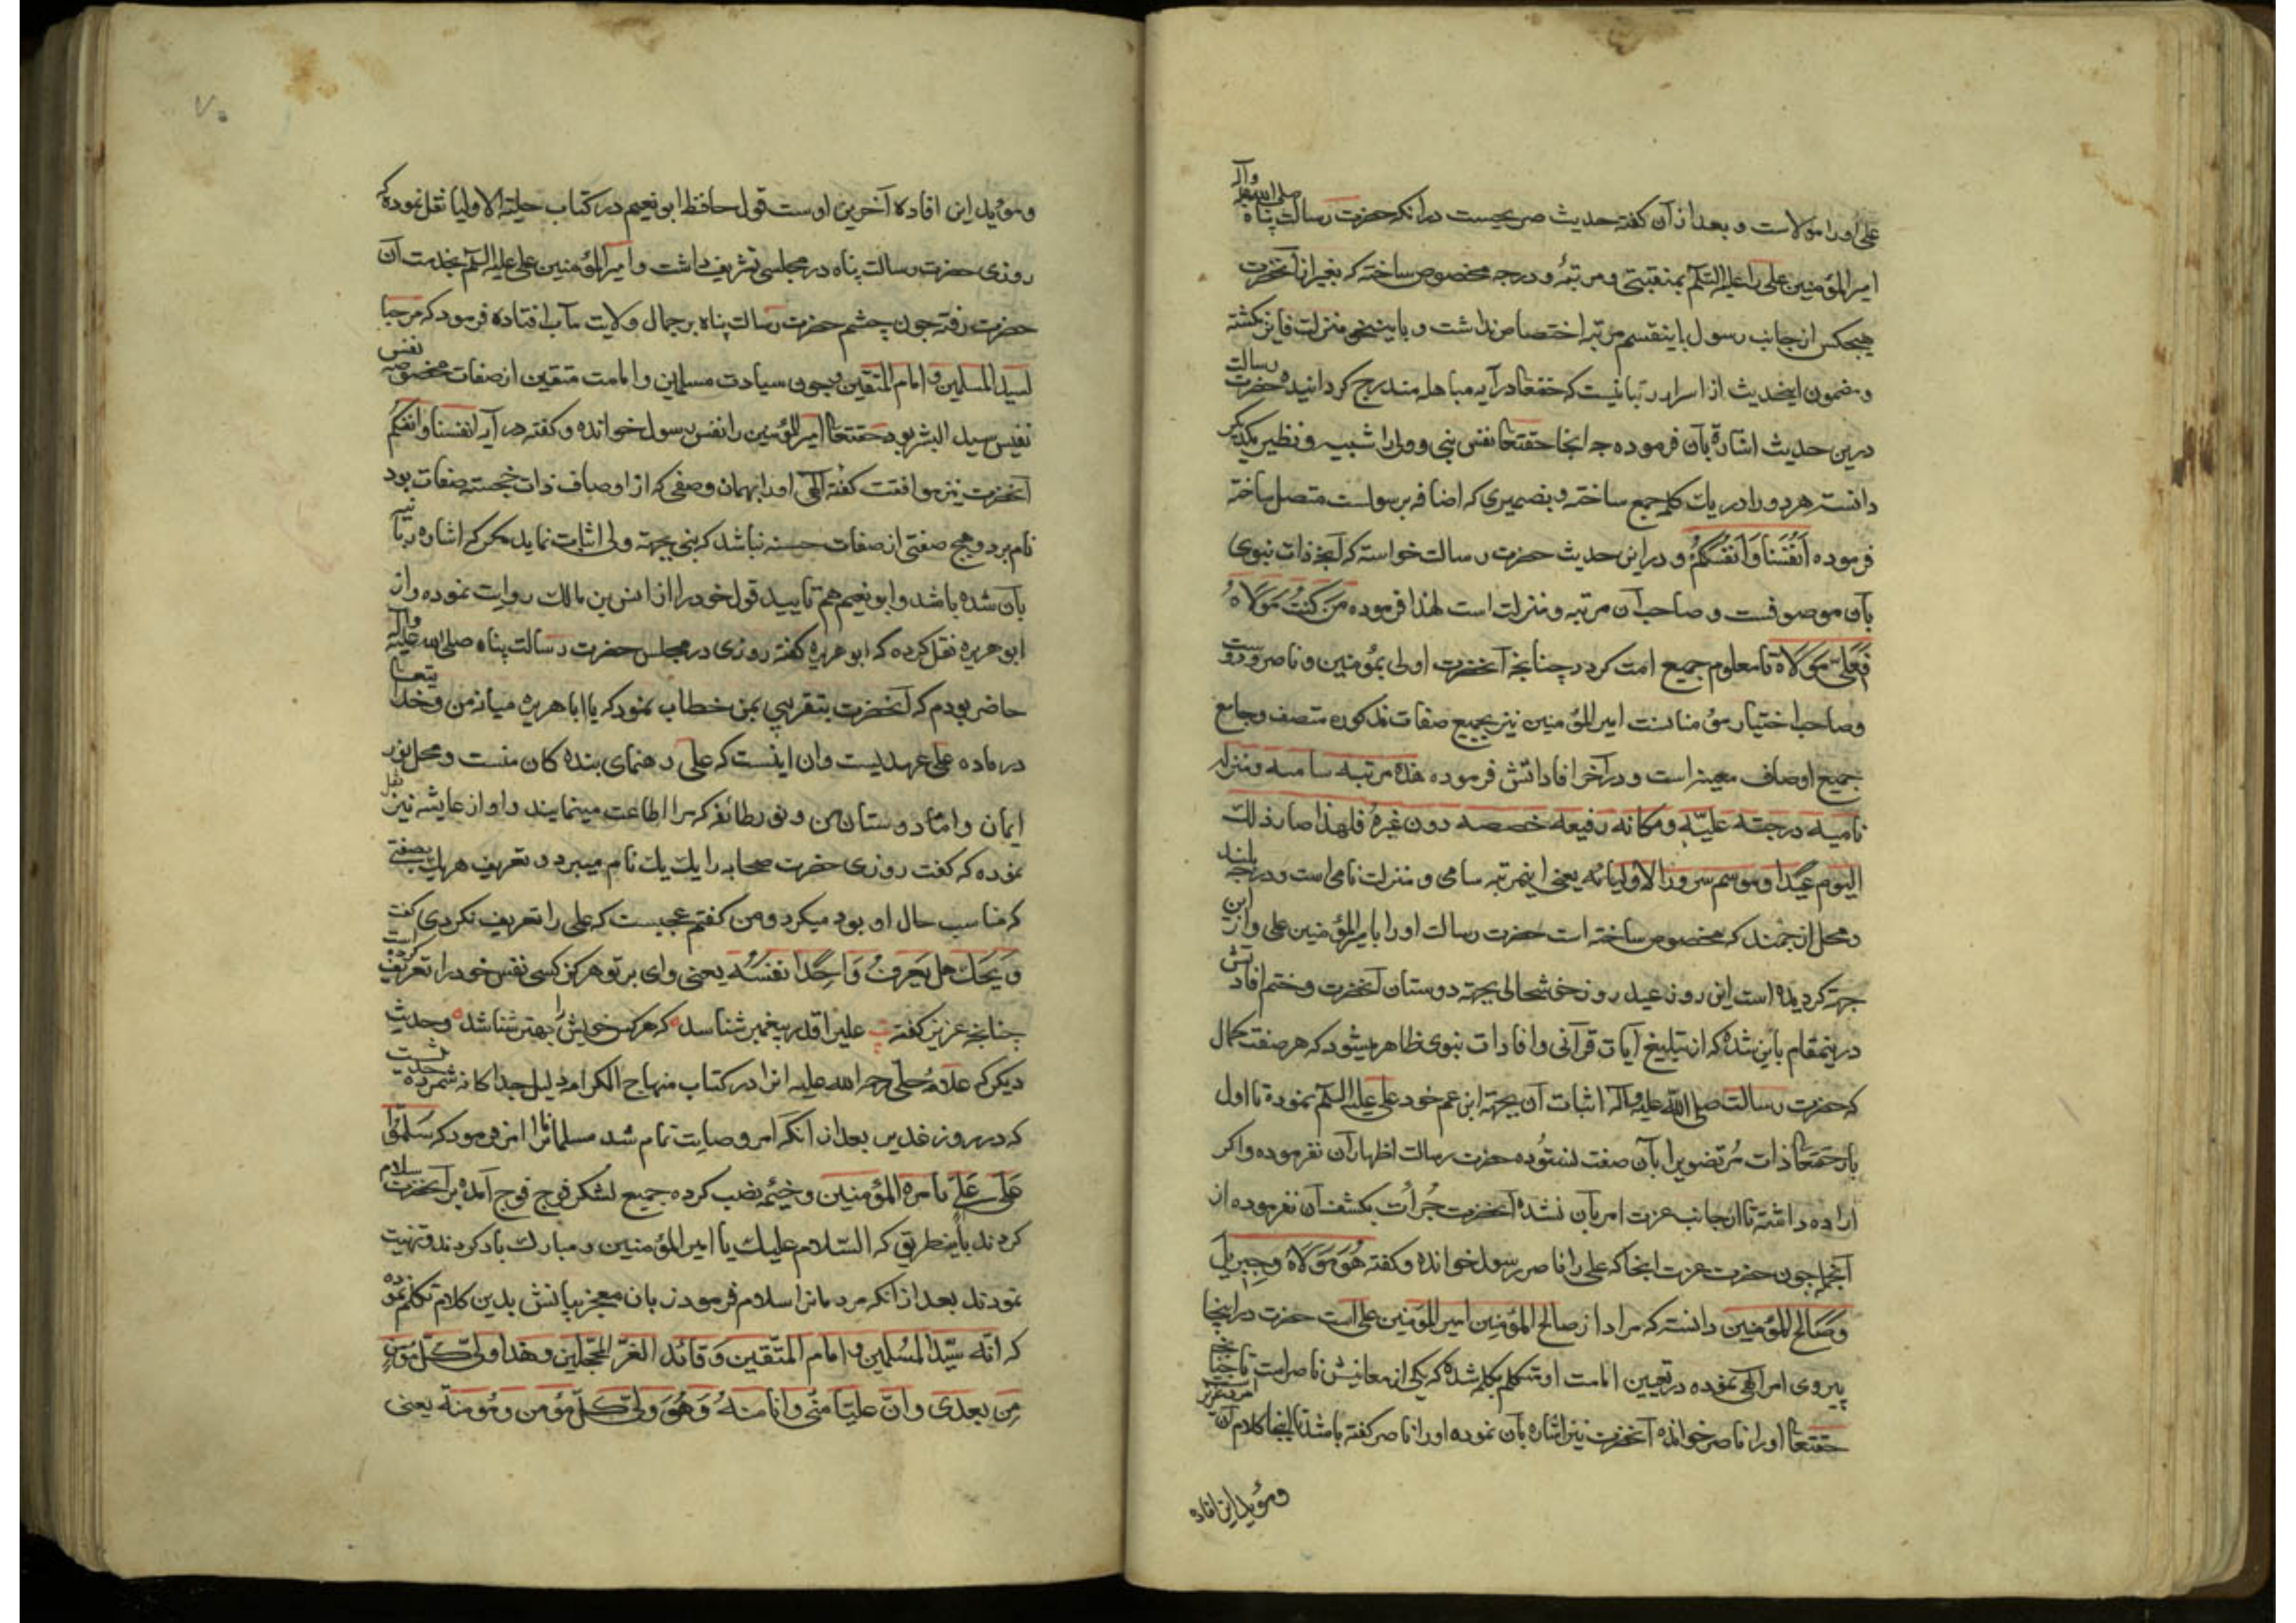 علی اورا مولاست و بعد از آن کفته حدیث صریحیست در انکه حضرت رسالت پناه صلی الله علیه واله
امیر المؤمنین علی را علیه السلم بمنقبتی و مرتبهٔ و درجه مخصوص ساخته که بغیر از آنحضرت
هیچکس از جانب رسول باینقسم مرتبه اختصاص نداشت و باینخو منزلت فایز نکشته
و مضمون اینحدیث از اسرار ربانیست که حقتعا در آیه مباهله مندرج کردانیده حضرت رسالت
درین حدیث اشارة بآن فرموده چه انجا حقتعا نفس نبی و ولی را شبیه و نظیر یکدیکر
دانسته هر دو را در یک کلمه جمع ساخته و بضمیری که اضافه برسولست متصل ساخته
فرموده اَنفُسَنا وَاَنفُسَکُم و در این حدیث حضرت رسالت خواسته که آنچه ذات نبوی
بآن موصوفست و صاحب آن مرتبه و منزلت است لهذا فرموده مَن کُنتُ مَولاهُ
فَعَلیٌّ مَولاهُ تا معلوم جمیع امت کردد چنانچه آنحضرت اولی بمؤمنین و ناصر و دوست
و صاحب اختیار مؤمنانست امیر المؤمنین نیز بجمیع صفات مذکوره متصف و جامع
جمیع اوصاف معینه است و در آخر افاداتش فرموده هذه مرتبه سامیه و منزله
نامیه درجته علیّه و مکانه رفیعه خصصه دون غیرهٔ فلهذا صار ذلک
الیوم عیدا و موسم سرورا لاولیائه یعنی اینمرتبه سامی و منزلت نامی است و درجه بلند
و محل ارجمند که مخصوص ساخته است حضرت رسالت اورا بامیر المؤمنین علی و از این
جهة کردیده است این روز عید روز خوشحالی بجهة دوستان آنحضرت و ختم افاداتش
درینمقام باین شده که از تبلیغ آیات قرآنی و افادات نبوی ظاهر میشود که هر صفت کمال
که حضرت رسالت صلی الله علیه واله اثبات آن بجهة ابن عم خود علی علیه السلم نموده تا اول
بار حقتعا ذات مرتضویرا بآن صفت نستوده حضرت رسالت اظهار آن نفرموده و اکر
اراده داشته تا از جانب عزت امر بآن نشده آنحضرت جُرأت بکشف آن نفرموده از
آنجمله چون حضرت عزت انجا که علی را ناصر رسول خوانده و کفته هُوَ مَولاهُ وَجِبریل
وَصالح المؤمنین دانسته که مراد از صالح المؤمنین امیر المؤمنین علی است حضرت در اینجا
پیروی امر الهی نموده در تعیین امامت او متکلم بکلمه شده که یکی از معانیش ناصر است تا چنانچه
حقتعا اورا ناصر خوانده آنحضرت نیز اشاره بآن نموده اورا ناصر کفته باشد تا اینجا کلام آن
و مؤید این افاده
۷۰
و مؤید این افاده آخرین اوست قول حافظ ابو نعیم در کتاب حلیة الاولیا نقل نموده که
روزی حضرت رسالت پناه در مجلسی تشریف داشت و امیر المؤمنین علی علیه السلم بخدمت آن
حضرت رفته چون چشم حضرت رسالت پناه بر جمال ولایت مآب افتاده فرمود که مرحبا
لسید المسلمین و امام المتقین و چون سیادت مسلمین و امامت متقین از صفات مخصوصه نفس
نفیس سید البشر بود حقتعا امیر المؤمنین را نفس رسول خوانده و کفته در آیه انفسنا وانفسکم
آنحضرت نیز موافقت کفته الهی اورا بهمان وصفی که از اوصاف ذات خجسته صفات بود
نام برد و هیچ صفتی از صفات حسنه نباشد که نبی بجهة ولی اثبات نماید مکر که اشاره ربانیه
بآن شده باشد و ابو نعیم هم تایید قول خود را از انس بن مالک روایت نموده و از
ابو هریره نقل کرده که ابو هریره کفته روزی در مجلس حضرت رسالت پناه صلی الله علیه واله
حاضر بودم که آنحضرت بتقریبی بمن خطاب نمود که یا ابا هریره میانه من و خدا یتعا
در ماده علی عهدیست وان اینست که علی رهنمای بنده کان منست و محل نور
ایمان و امام دوستان من و نور طائفه که مرا اطاعت مینمایند و او از عایشه نیز نقل
نموده که کفت روزی حضرت صحابه را یک یک نام میبرد و تعریف هر یک بصفتی
که مناسب حال او بود میکرد و من کفتم عجبست که علی را تعریف نکردی کفت
وَیحَک هل یَعرفُ وَاحِدًا نَفسَهُ یعنی وای بر تو هرکز کسی نفس خود را تعریف کرده است
چنانچه عزیز کفته علیرا قدر پیغمبر شناسد که هر کس خویش را بهتر شناسد و حدیث
دیکر که علامهٔ حلی رحمه الله علیه انرا در کتاب منهاج الکرامه دلیل جداکانه شمرده
که در روز غدیر بعد از انکه امر وصایت تمام شد مسلمانانرا امر فرمود که سَلّموا
عَلی عَلیّ بامرة المؤمنین و خیمه نصب کرده جمیع لشکر فوج فوج آمده بر آنحضرت سلام
کردند باینطریق که السّلام علیک یا امیر المؤمنین و مبارک باد کردند و تهنیت
نمودند بعد از انکه مردمانرا سلام فرمود زبان معجز بیانش بدین کلام تکلم نموده
که انّه سیّد المسلمین و امام المتقین وَقائد الغرّ المحجّلین وهذا ولیّ کلّ مؤمن
مِن بعدی وانّ علیّا منّی وانا منهُ وَهُوَ ولیّ کلّ مؤمن ومُؤمنة یعنی